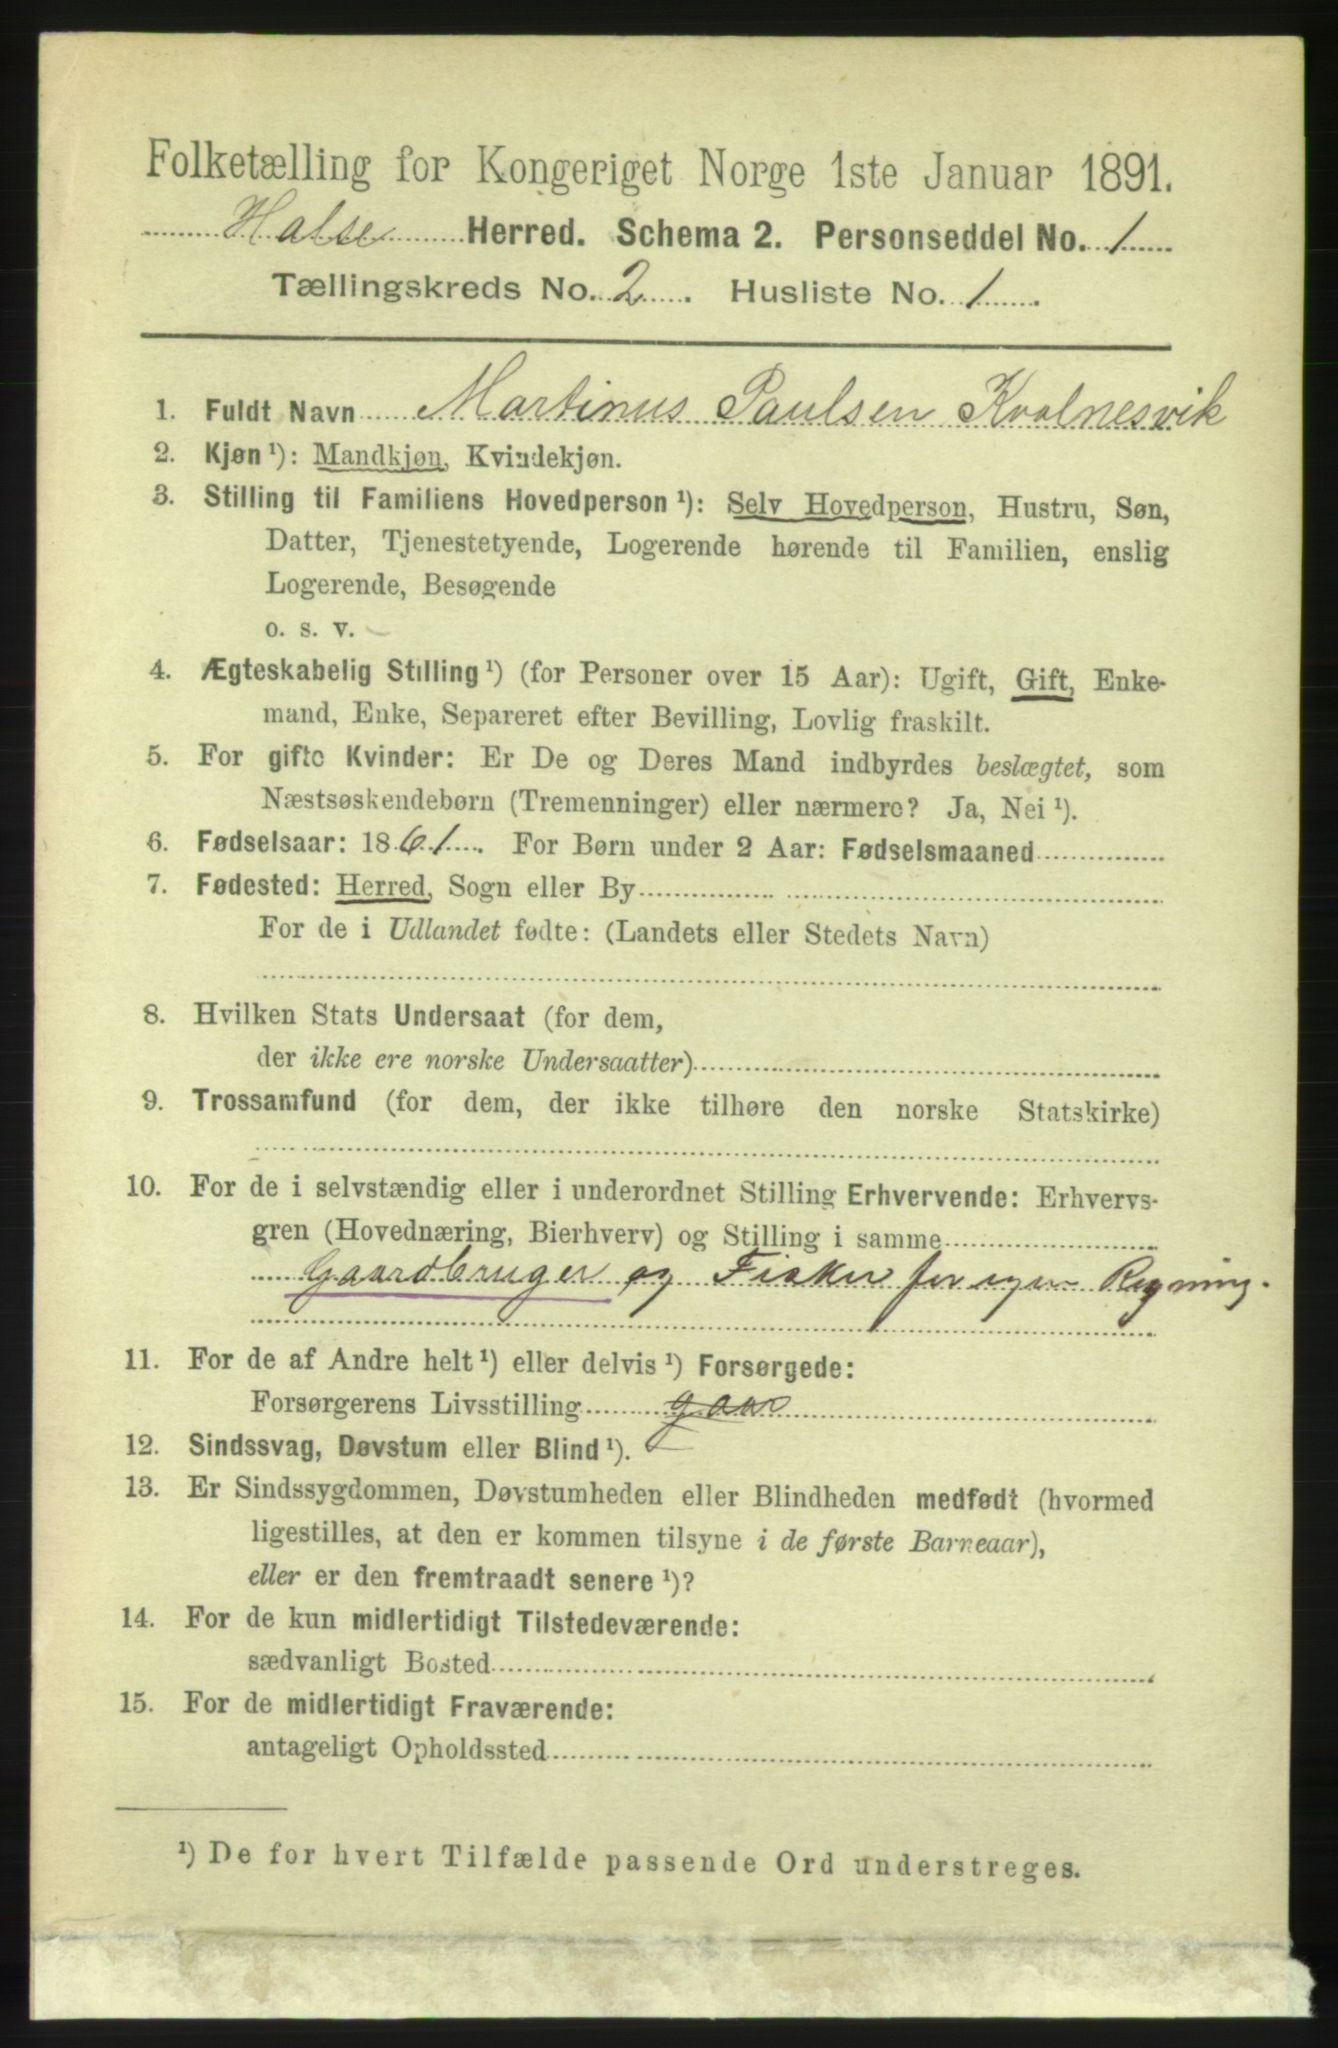 Folketælling for Kongeriget Norge 1ste Januar 1891.
Halse Herred. Schema 2. Personseddel No. 1
Tællingskreds No. 2. Husliste No. 1
1. Fuldt Navn Martinus Paulsen Kvalnesvik
2. Kjøn ¹): Mandkjøn, Kvindekjøn.
3. Stilling til Familiens Hovedperson ¹): Selv Hovedperson, Hustru, Søn,
Datter, Tjenestetyende, Logerende hørende til Familien, enslig
Logerende, Besøgende
o. s. v.
4. Ægteskabelig Stilling ¹) (for Personer over 15 Aar): Ugift, Gift, Enke-
mand, Enke, Separeret efter Bevilling, Lovlig fraskilt.
5. For gifte Kvinder: Er De og Deres Mand indbyrdes beslægtet, som
Næstsøskendebørn (Tremenninger) eller nærmere? Ja, Nei ¹).
6. Fødselsaar: 1861. For Børn under 2 Aar: Fødselsmaaned
7. Fødested: Herred, Sogn eller By
For de i Udlandet fødte: (Landets eller Stedets Navn)
8. Hvilken Stats Undersaat (for dem,
der ikke ere norske Undersaatter)
9. Trossamfund (for dem, der ikke tilhøre den norske Statskirke)
10. For de i selvstændig eller i underordnet Stilling Erhvervende: Erhvervs-
gren (Hovednæring, Bierhverv) og Stilling i samme
Gaardbruger og Fisker for egen Regning.
11. For de af Andre helt ¹) eller delvis ¹) Forsørgede:
Forsørgerens Livsstilling gaar
12. Sindssvag, Døvstum eller Blind ¹).
13. Er Sindssygdommen, Døvstumheden eller Blindheden medfødt (hvormed
ligestilles, at den er kommen tilsyne i de første Barneaar),
eller er den fremtraadt senere ¹)?
14. For de kun midlertidigt Tilstedeværende:
sædvanligt Bosted
15. For de midlertidigt Fraværende:
antageligt Opholdssted
¹) De for hvert Tilfælde passende Ord understreges.